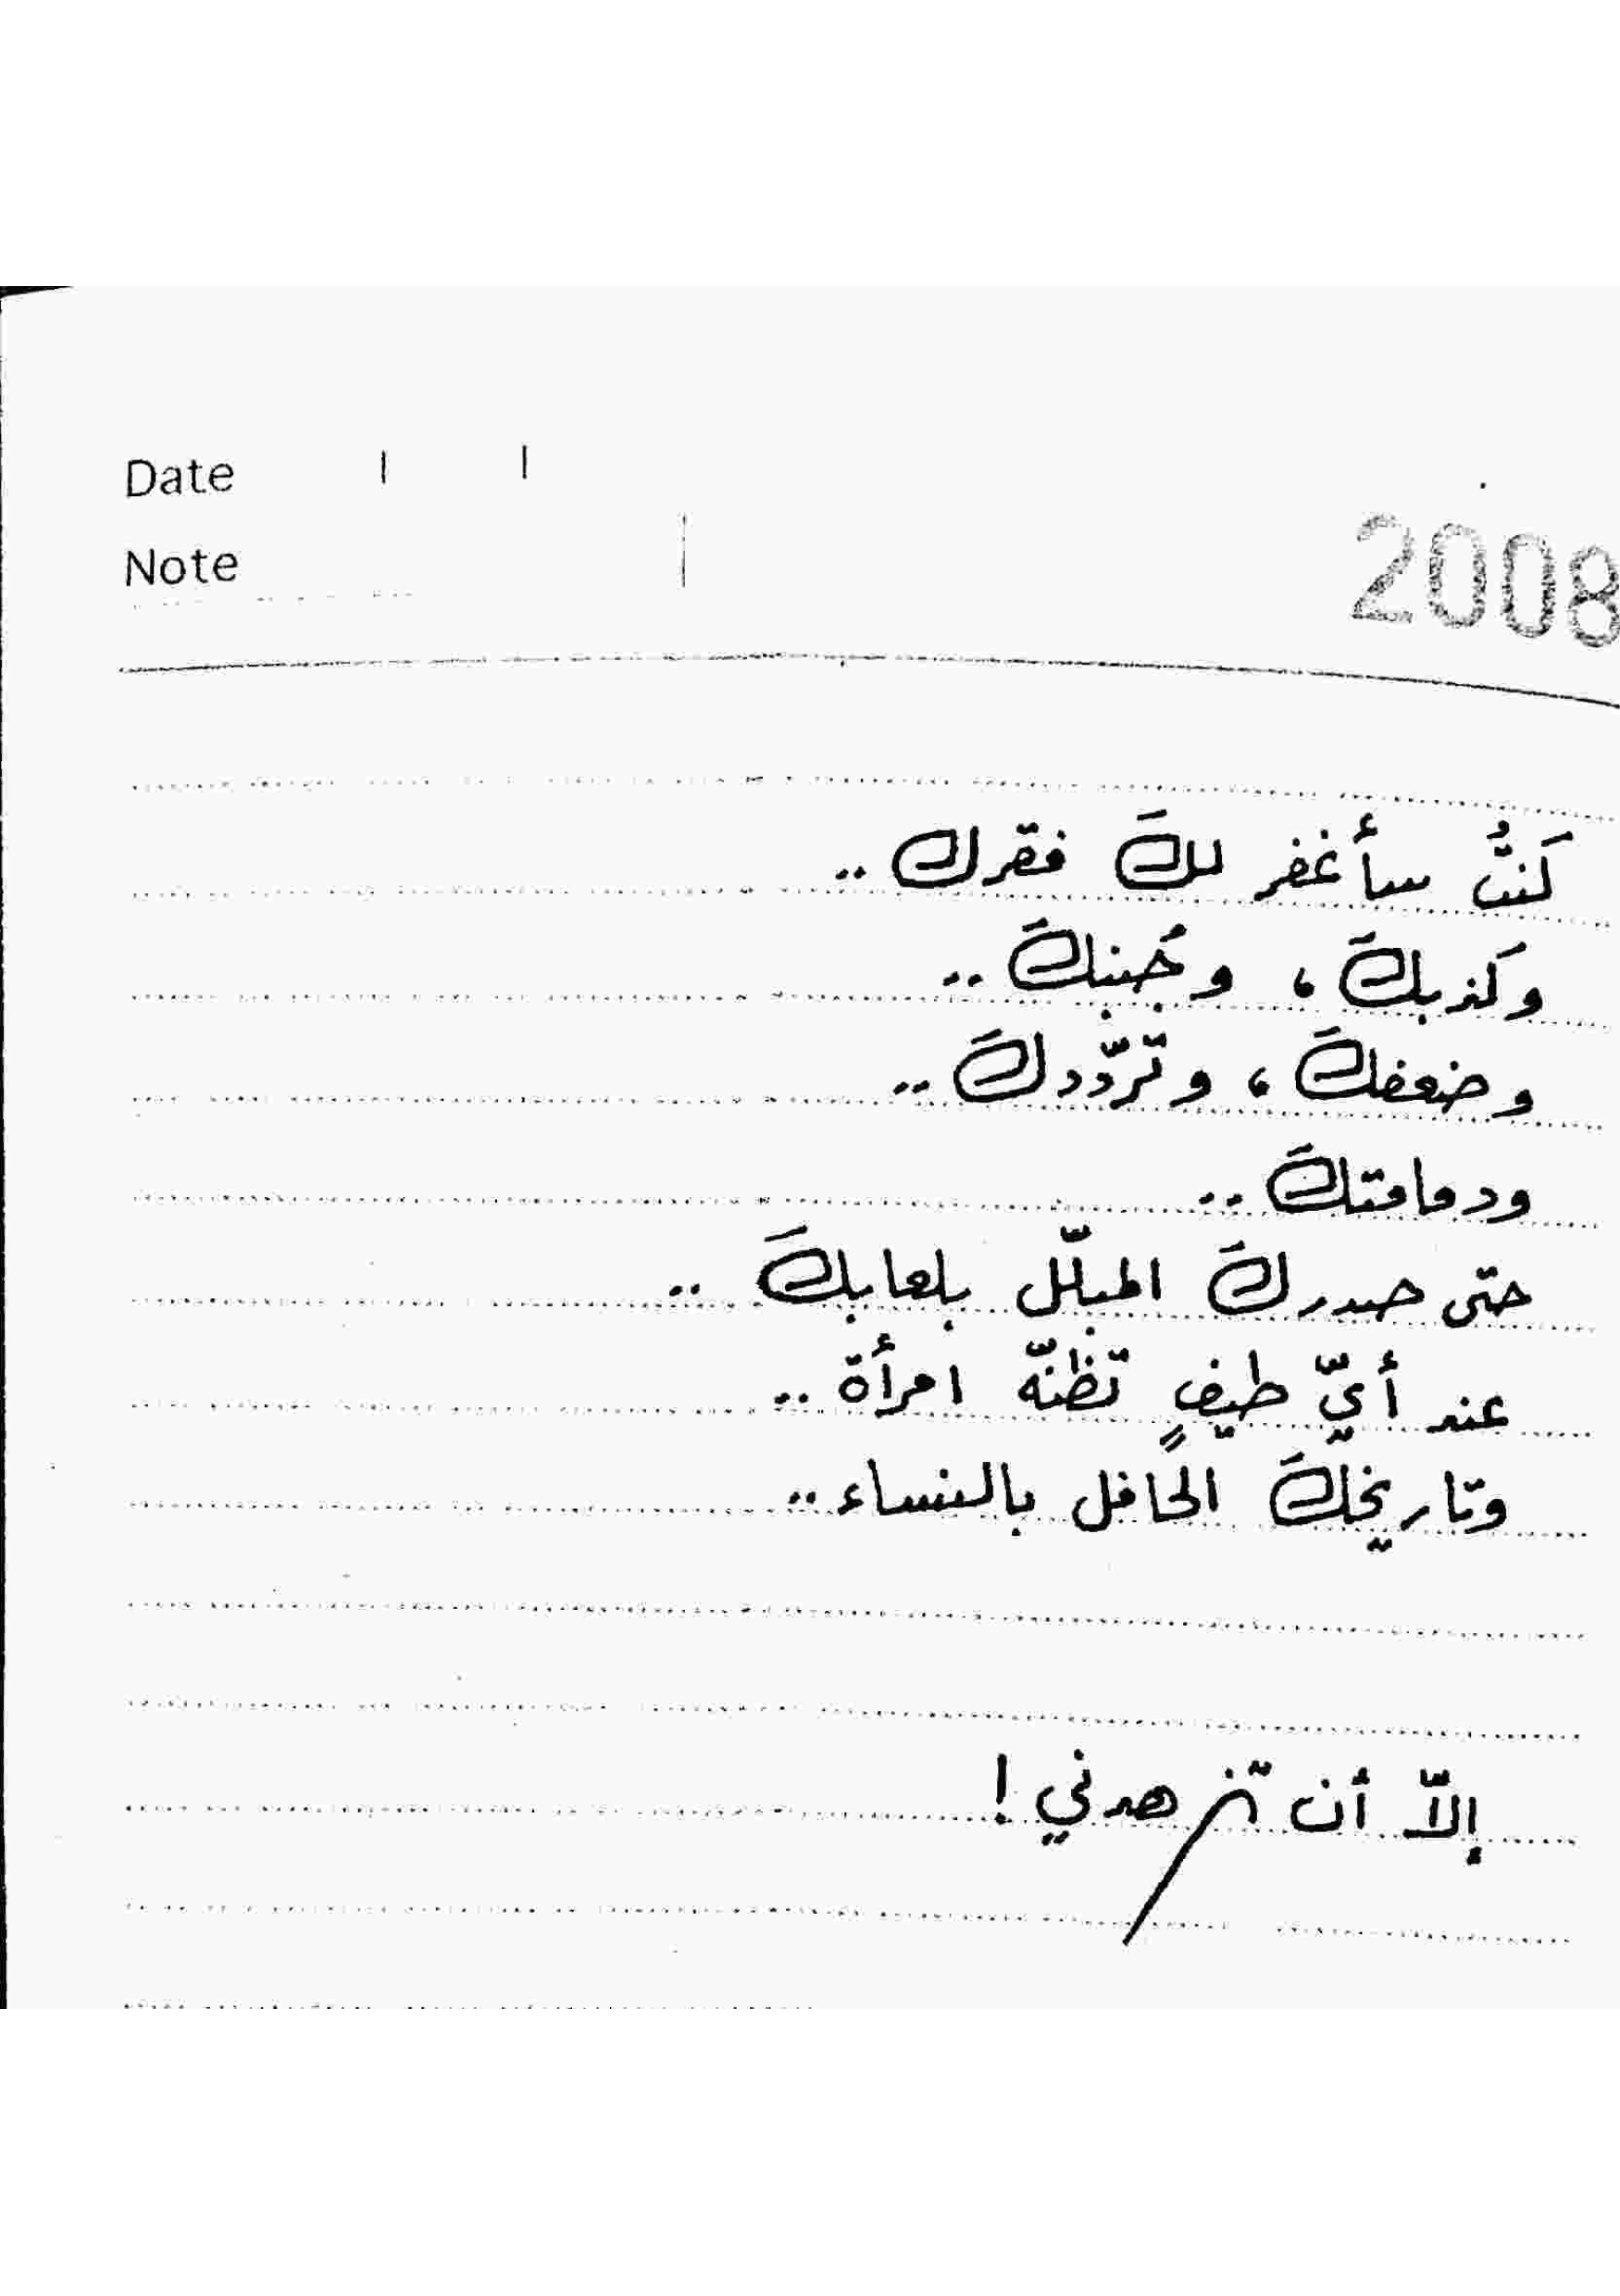 Date / /
Note
2008
كَنتُ سأغفر لكَ فقرك ..
وكَذبكَ ، وجُبنكَ ..
وضعفكَ ، وتردّدكَ ..
ودمامتكَ ..
حتى صدركَ المبلّل بلعابكَ ..
عند أيّ طيفٍ تظنّه امرأة ..
وتاريخكَ الحافل بالنساء ..
إلاّ أن تزهدني !